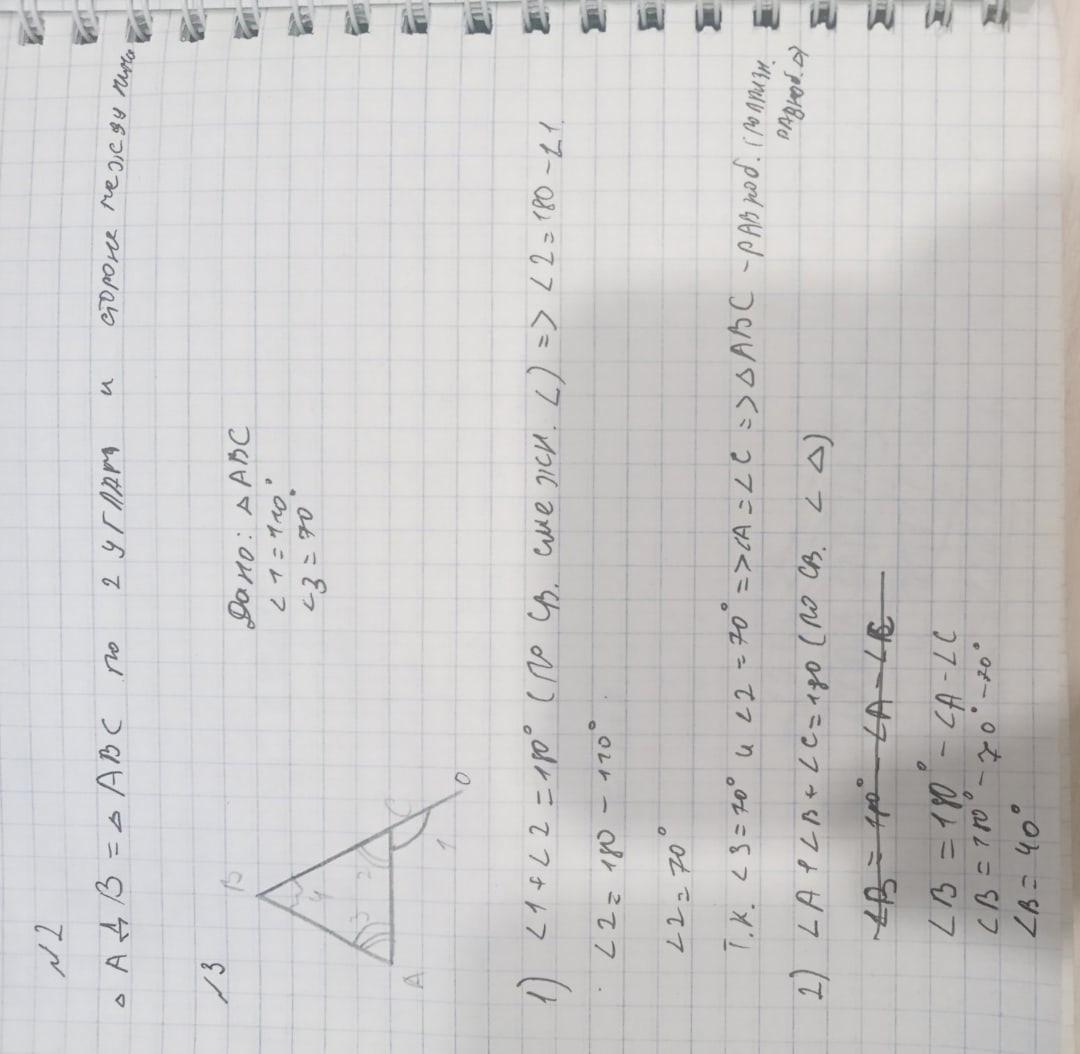 √2
△ A B = △ ABC по 2 углам и стороне между ними
√3
Дано: △ ABC
∠1 = 110°
∠3 = 70°
B
4
3
2
C
A
1
O
1) ∠1 + ∠2 = 180° (по св. смежн. ∠) => ∠2 = 180 - ∠1.
∠2 = 180 - 110°
∠2 = 70°
Т.к. ∠3 = 70° и ∠2 = 70° => ∠A = ∠C => △ ABC - равноб. (по призн.
равноб. △)
2) ∠A + ∠B + ∠C = 180 (по св. ∠ △)
∠B = 180° - ∠A - ∠B
∠B = 180° - ∠A - ∠C
∠B = 180° - 70° - 70°
∠B = 40°